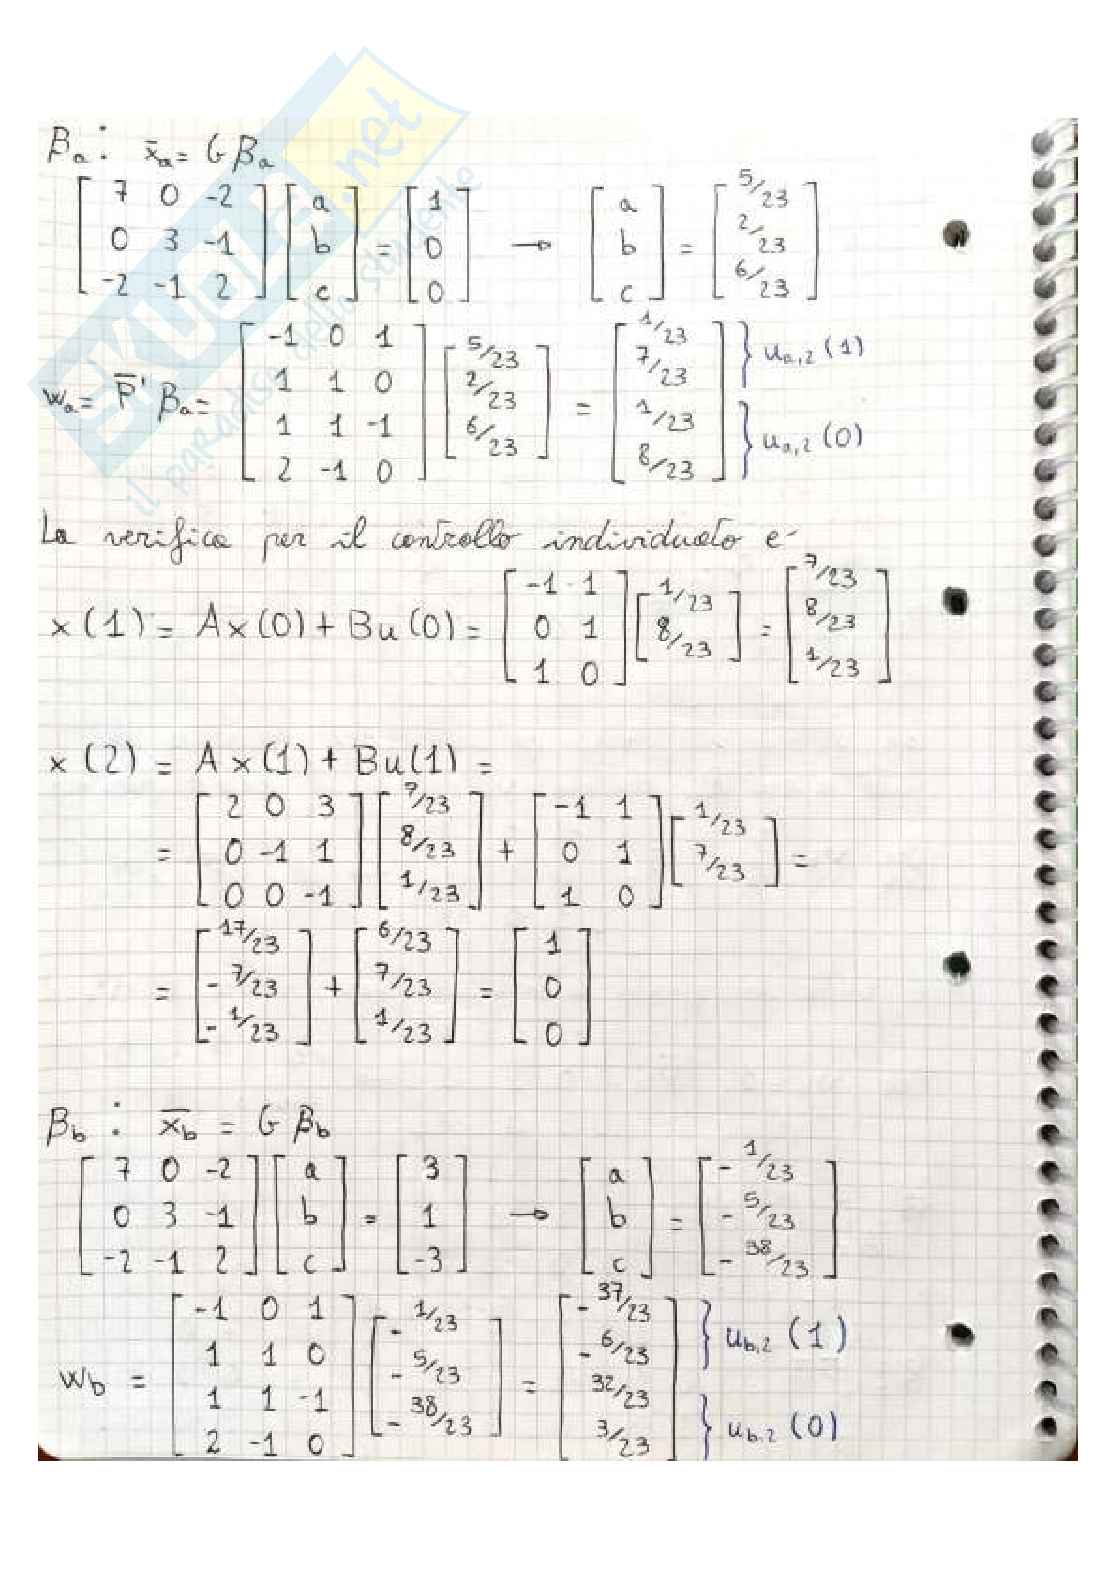 βa: x̄a = G βa
[7 0 -2; 0 3 -1; -2 -1 2] [a; b; c] = [1; 0; 0] → [a; b; c] = [5/23; 2/23; 6/23]
wa = P̄' βa = [-1 0 1; 1 1 0; 1 1 -1; 2 -1 0] [5/23; 2/23; 6/23] = [1/23; 7/23; 1/23; 8/23] } ua,2 (1) } ua,2 (0)
La verifica per il controllo individuato e'
x(1) = Ax(0) + Bu(0) = [-1 1; 0 1; 1 0] [1/23; 8/23] = [7/23; 8/23; 1/23]
x(2) = Ax(1) + Bu(1) =
= [2 0 3; 0 -1 1; 0 0 -1] [7/23; 8/23; 1/23] + [-1 1; 0 1; 1 0] [1/23; 7/23] =
= [17/23; -7/23; -1/23] + [6/23; 7/23; 1/23] = [1; 0; 0]
βb: x̄b = G βb
[7 0 -2; 0 3 -1; -2 -1 2] [a; b; c] = [3; 1; -3] → [a; b; c] = [-1/23; -5/23; -38/23]
wb = [-1 0 1; 1 1 0; 1 1 -1; 2 -1 0] [-1/23; -5/23; -38/23] = [-37/23; -6/23; 32/23; 3/23] } ub,2 (1) } ub,2 (0)
SKUOLA.net
il paradiso dello studente